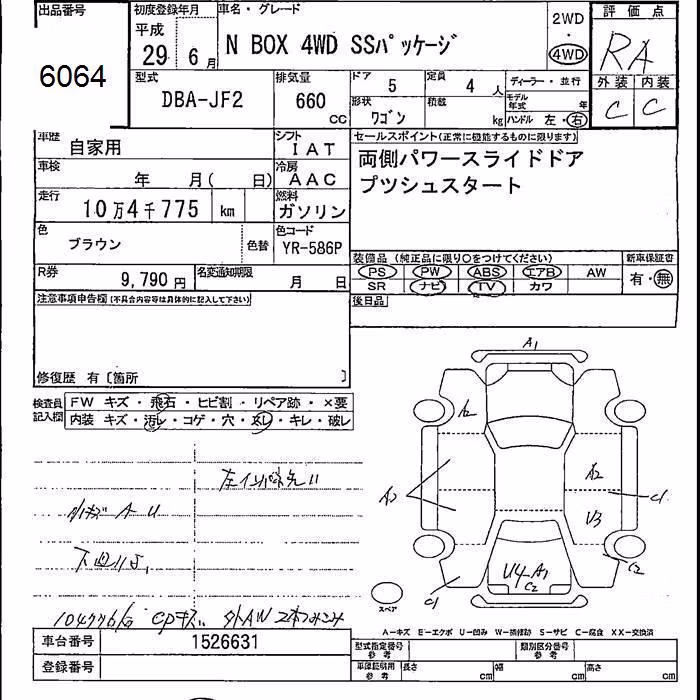 出品番号 初度登録年月 車名・グレード 評価点
6064 平成 29 6月 N BOX 4WD SSパッケージ 2WD 4WD RA
型式 DBA-JF2 排気量 660 CC ドア 5 定員 4人 ディーラー・並行 外装 内装
形状 ワゴン 積載 kg モデル年式 年 C C
ハンドル 左・右
車歴 自家用 シフト IAT セールスポイント(正常に機能するものに限ります)
車検 年 月( 日) 冷房 AAC 両側パワースライドドア
走行 10万4千775 km 燃料 ガソリン プツシュスタート
色 ブラウン 色替 色コード YR-586P
装備品(純正品に限り○をつけてください) 新車保証書
R券 9,790円 名変通知期限 月 日 PS PW ABS エアB AW 有・無
SR ナビ TV カワ
注意事項申告欄(不具合内容等は具体的に記入して下さい) 後日品
修復歴 有〔箇所 〕
検査員記入欄 FW キズ・飛石・ヒビ割・リペア跡・×要
内装 キズ・汚レ・コゲ・穴・スレ・キレ・破レ
A1
A2
A2 A2 C1
U3
小キズ A U
C2
U4 A1
C2
C1
スペア
104776km CPキズ 外AW 2本つみこみ
A-キズ E-エクボ U-凹み W-補修跡 S-サビ C-腐食 XX-交換済
車台番号 1526631 型式指定番号 参考 類別区分番号 参考
登録番号 車庫証明用 参考 長さ cm 幅 cm 高さ cm